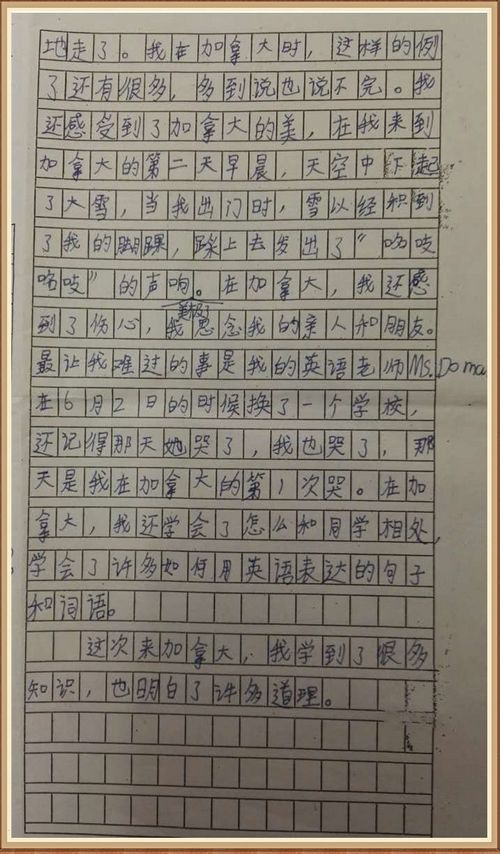 地走了。我在加拿大时，这样的例
了还有很多，多到说也说不完。我
还感受到了加拿大的美，在我来到
加拿大的第二天早晨，天空中下起
了大雪，当我出门时，雪以经积到
了我的脚踝，踩上去发出了“咯吱
咯吱”的声响。在加拿大，我还感
美极了
到了伤心，我思念我的亲人和朋友。
最让我难过的事是我的英语老师Ms.Doma
在6月2日的时候换了一个学校，
还记得那天她哭了，我也哭了，那
天是我在加拿大的第1次哭。在加
拿大，我还学会了怎么和同学相处，
学会了许多如何用英语表达的句子
和词语。
这次来加拿大，我学到了很多
知识，也明白了许多道理。